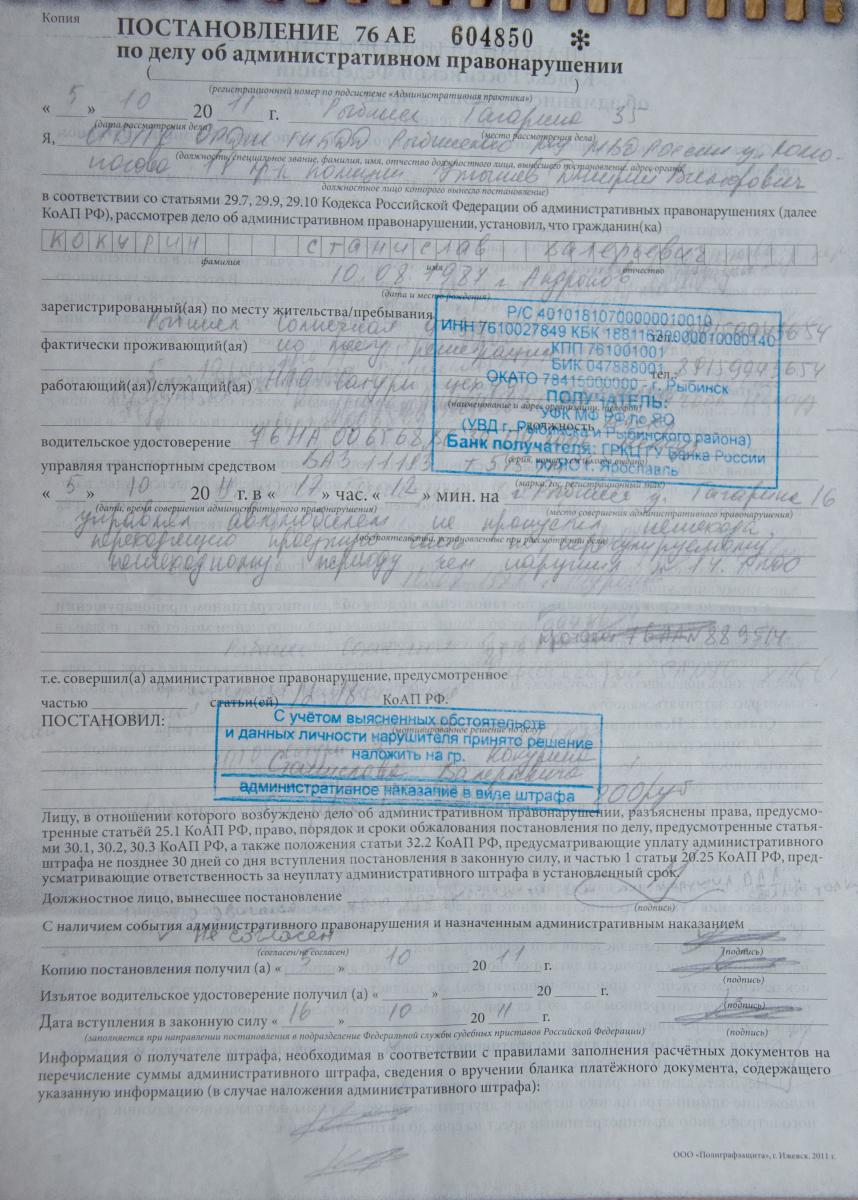 Копия
ПОСТАНОВЛЕНИЕ 76 АЕ 604850 *
по делу об административном правонарушении
(регистрационный номер по подсистеме «Административная практика»)
« 5 » 10 20 11 г. Рыбинск Гагарина 35
(дата рассмотрения дела) (место рассмотрения дела)
Я, ГИБДД Рыбинского МВД России ул.
(должность, специальное звание, фамилия, имя, отчество должностного лица, вынесшего постановление, адрес органа,
полиции Дмитрий Викторович
должностное лицо которого вынесло постановление)
в соответствии со статьями 29.7, 29.9, 29.10 Кодекса Российской Федерации об административных правонарушениях (далее
КоАП РФ), рассмотрев дело об административном правонарушении, установил, что гражданин(ка)
КОКУРИН СТАНИСЛАВ Валерьевич
фамилия имя отчество
10.08.1984 г Андропов
(дата и место рождения)
зарегистрированный(ая) по месту жительства/пребывания
Рыбинск Солнечная
фактически проживающий(ая) по месту регистрации тел.:
работающий(ая)/служащий(ая)
(наименование и адрес организации, телефон)
должность
Р/С 40101810700000010010
ИНН 7610027849 КБК 18811630000010000140
КПП 761001001
БИК 047888001
ОКАТО 78415000000 - г. Рыбинск
ПОЛУЧАТЕЛЬ:
УФК МФ РФ по ЯО
(УВД г. Рыбинска и Рыбинского района)
Банк получателя: ГРКЦ ГУ Банка России
по ЯО г. Ярославль
водительское удостоверение 76 НА
управляя транспортным средством ВАЗ
(марка, гос. регистрационный знак)
« 5 » 10 20 11 г. в « 17 » час. « 12 » мин. на г. Рыбинск ул. Гагарина 16
(дата, время совершения административного правонарушения) (место совершения административного правонарушения)
управлял автомобилем не пропустил пешехода,
(обстоятельства, установленные при рассмотрении дела)
переходящего проезжую часть по нерегулируемому
пешеходному переходу чем нарушил п 14.1 ПДД
889514
т.е. совершил(а) административное правонарушение, предусмотренное
частью статьи(ей) 12.18 КоАП РФ.
ПОСТАНОВИЛ:
(мотивированное решение по делу)
С учётом выясненных обстоятельств
и данных личности нарушителя принято решение
наложить на гр. Кокурина
Станислава Валерьевича
административное наказание в виде штрафа 800 руб
Лицу, в отношении которого возбуждено дело об административном правонарушении, разъяснены права, предусмо-
тренные статьёй 25.1 КоАП РФ, право, порядок и сроки обжалования постановления по делу, предусмотренные статья-
ми 30.1, 30.2, 30.3 КоАП РФ, а также положения статьи 32.2 КоАП РФ, предусматривающие уплату административного
штрафа не позднее 30 дней со дня вступления постановления в законную силу, и частью 1 статьи 20.25 КоАП РФ, пред-
усматривающие ответственность за неуплату административного штрафа в установленный срок.
Должностное лицо, вынесшее постановление
(подпись)
С наличием события административного правонарушения и назначенным административным наказанием
Не согласен
(согласен/не согласен) (подпись)
Копию постановления получил (а) « 5 » 10 20 11 г.
(подпись)
Изъятое водительское удостоверение получил (а) « » 20 г.
(подпись)
Дата вступления в законную силу « 16 » 10 20 11 г.
(заполняется при направлении постановления в подразделение Федеральной службы судебных приставов Российской Федерации) (подпись)
Информация о получателе штрафа, необходимая в соответствии с правилами заполнения расчётных документов на
перечисление суммы административного штрафа, сведения о вручении бланка платёжного документа, содержащего
указанную информацию (в случае наложения административного штрафа):
ООО «Полиграфзащита», г. Ижевск, 2011 г.